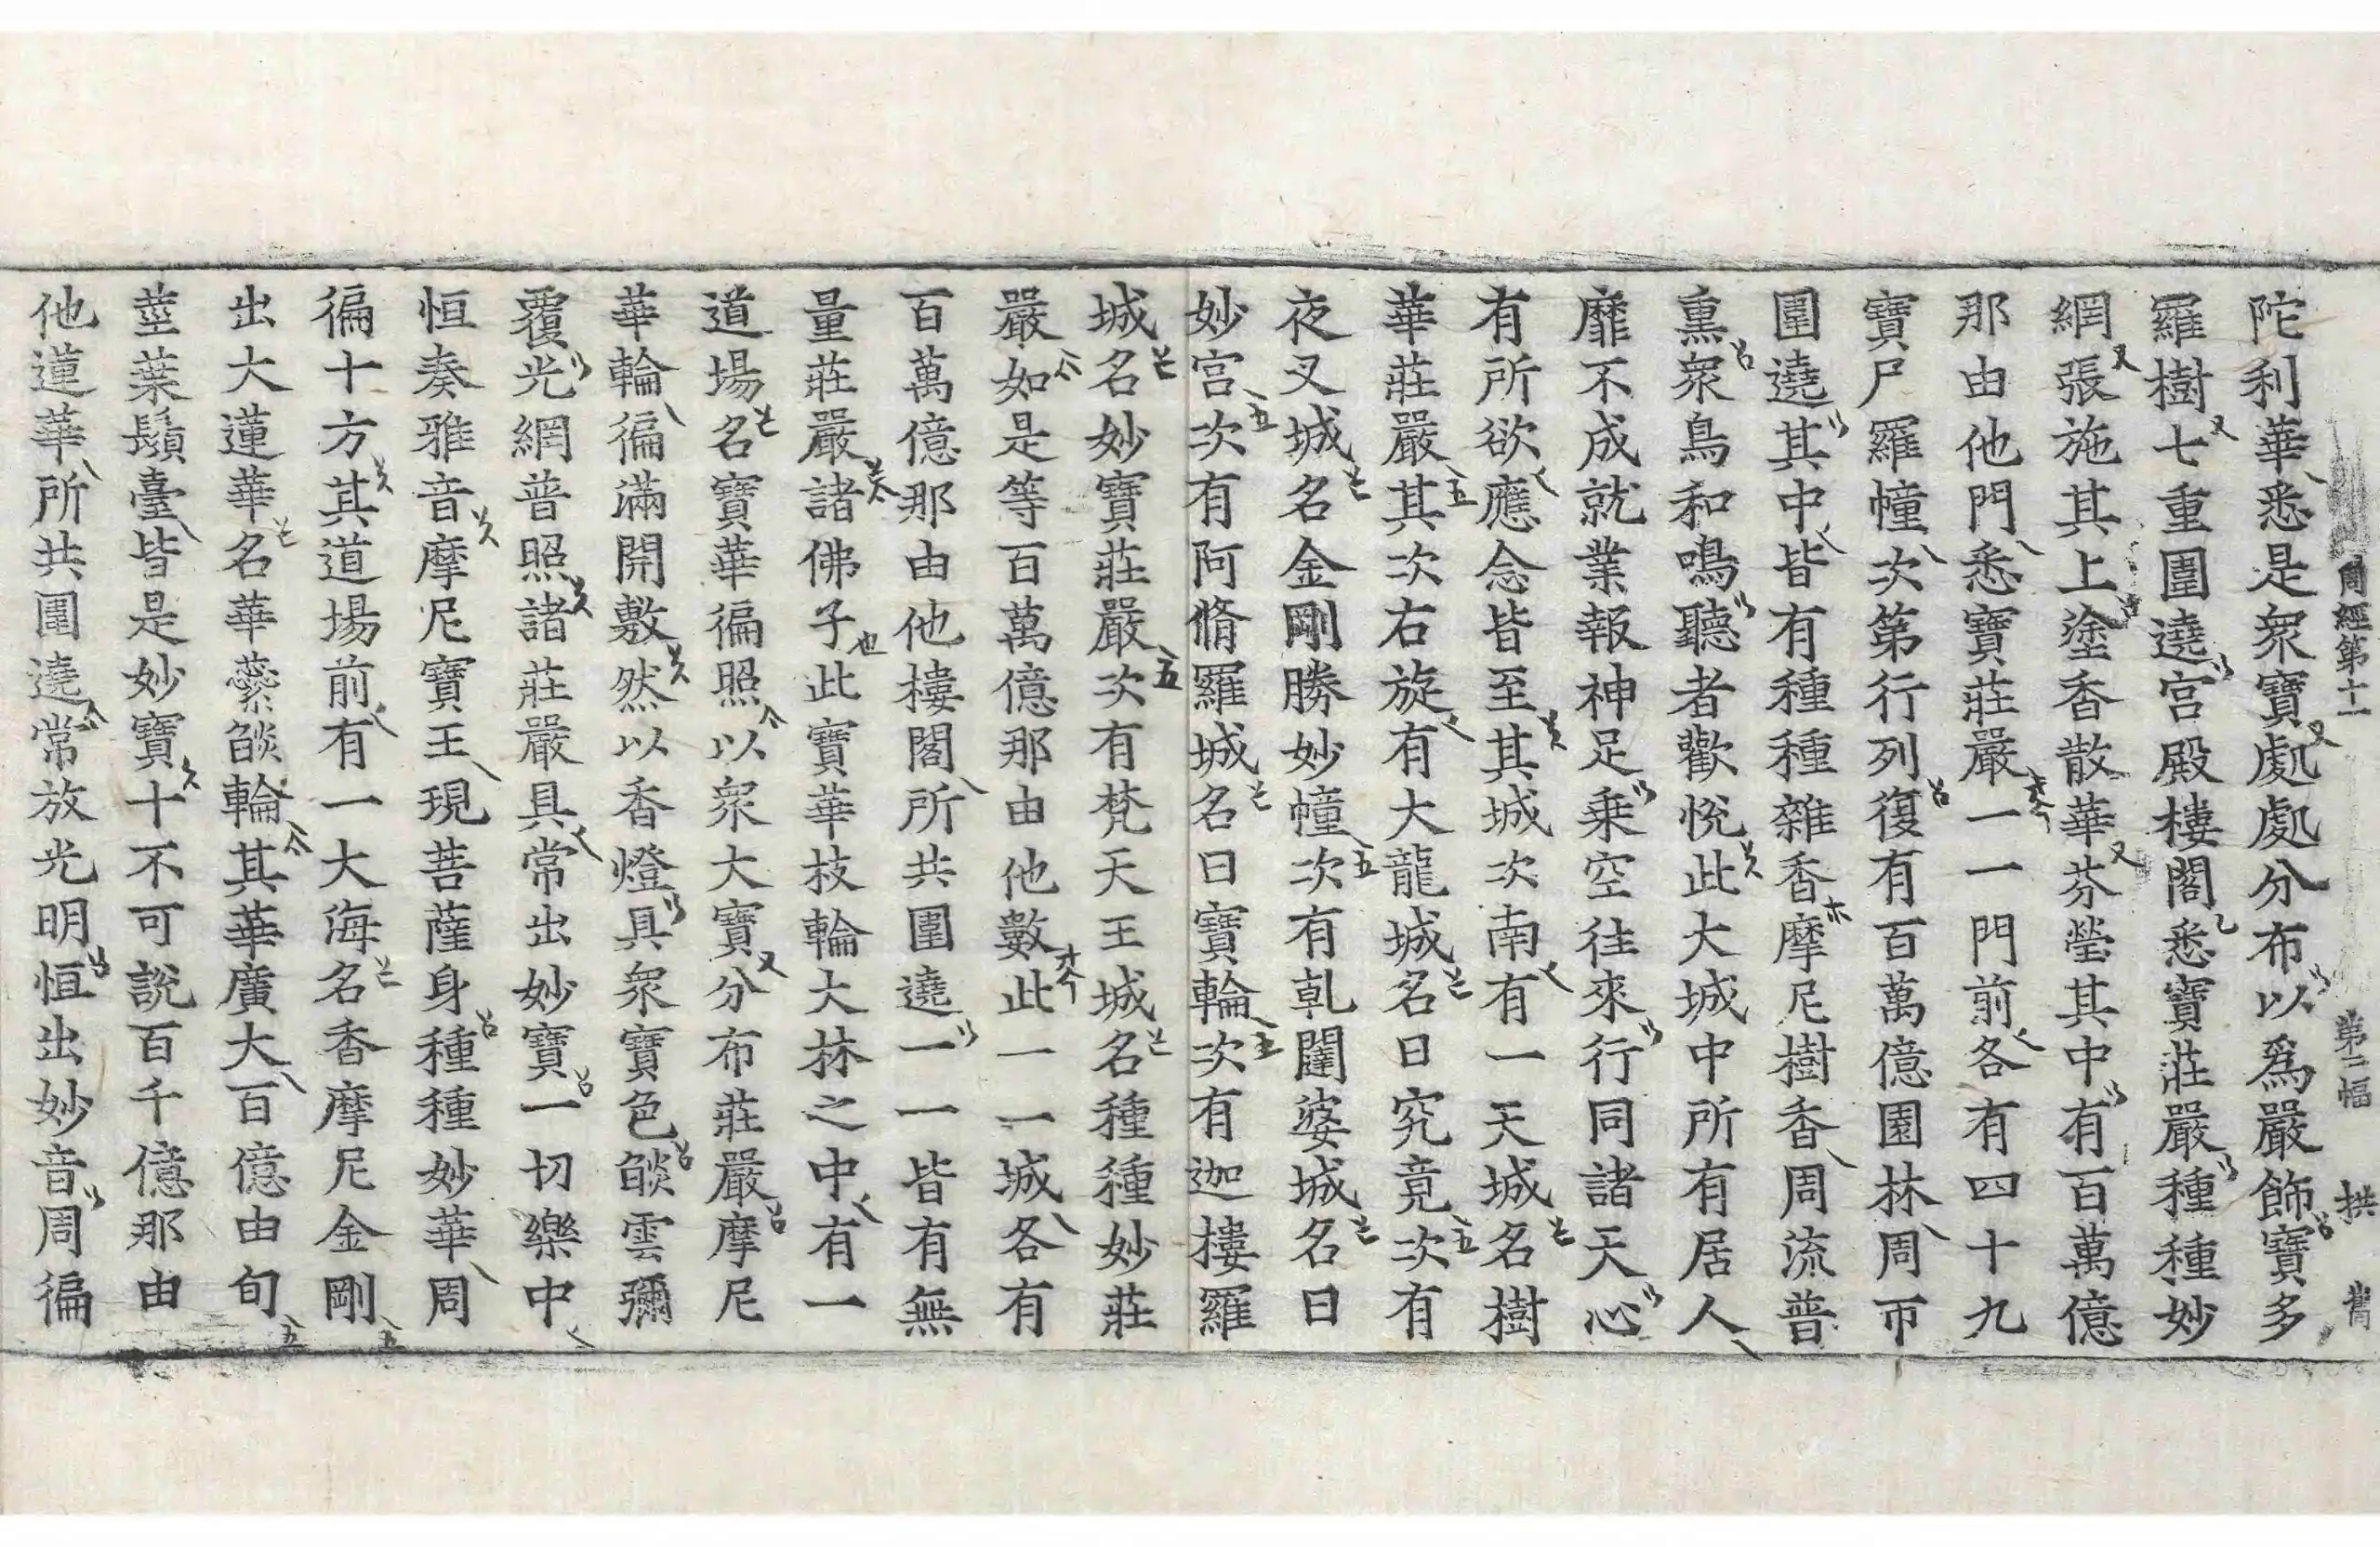 周經第十一 第二幅 拱
陀利華悉是衆寶處處分布以爲嚴飾寶多
羅樹七重圍遶宮殿樓閣悉寶莊嚴種種妙
網張施其上塗香散華芬瑩其中有百萬億
那由他門悉寶莊嚴一一門前各有四十九
寶尸羅幢次第行列復有百萬億園林周帀
圍遶其中皆有種種雜香摩尼樹香周流普
熏衆鳥和鳴聽者歡悅此大城中所有居人
靡不成就業報神足乘空往來行同諸天心
有所欲應念皆至其城次南有一天城名樹
華莊嚴其次右旋有大龍城名曰究竟次有
夜叉城名金剛勝妙幢次有乹闥婆城名曰
妙宮次有阿脩羅城名曰寶輪次有迦樓羅
城名妙寶莊嚴次有梵天王城名種種妙莊
嚴如是等百萬億那由他數此一一城各有
百萬億那由他樓閣所共圍遶一一皆有無
量莊嚴諸佛子此寶華枝輪大林之中有一
道場名寶華徧照以衆大寶分布莊嚴摩尼
華輪徧滿開敷然以香燈具衆寶色燄雲彌
覆光網普照諸莊嚴具常出妙寶一切樂中
恒奏雅音摩尼寶王現菩薩身種種妙華周
徧十方其道場前有一大海名香摩尼金剛
出大蓮華名華蘂燄輪其華廣大百億由旬
莖葉鬚臺皆是妙寶十不可說百千億那由
他蓮華所共圍遶常放光明恒出妙音周徧